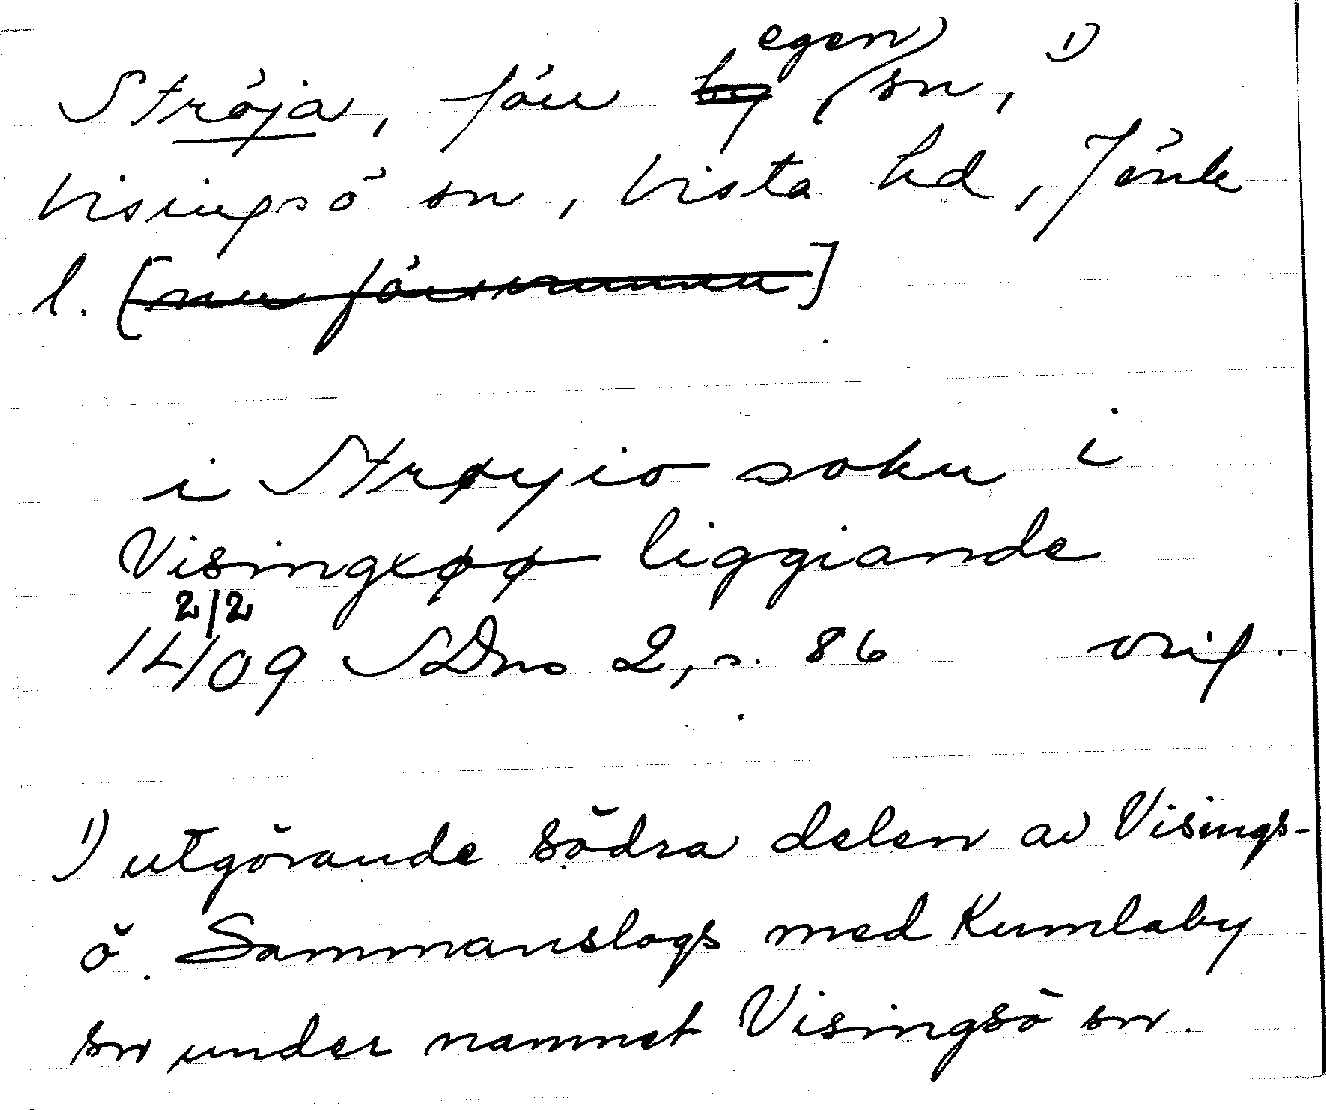 egen
Ströja, förr by sn, 1)
Visingsö sn, Vista hd, Jönk
l. [nu försvunnen]
i Strøyio soku i
Visingxøø liggiande
2/2
1409 SDns 2, s. 86 orig.
1) utgörande södra delen av Visings-
ö. Sammanslogs med Kumlaby
sn under namnet Visingsö sn.